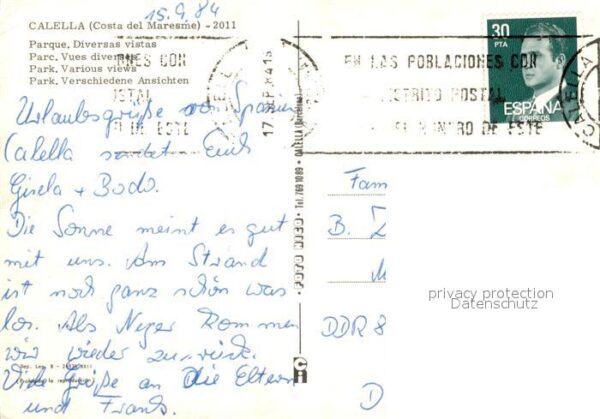 15.9.84
CALELLA (Costa del Maresme) - 2011
Parque. Diversas vistas
Parc. Vues diverses
Park. Various views
Park. Verschiedene Ansichten
NNES CON
ISTAL
EN LAS POBLACIONES CON
DISTRITO POSTAL
NUMERO DE ESTE
30
PTA
ESPAÑA
CORREOS
CALELLA
Urlaubsgrüße aus Spanien
Calella sendet Euch
Gisela + Bodo.
Die Sonne meint es gut
mit uns. Am Strand
ist noch ganz schön was
los. Als Neger kommen
wir wieder zurück.
Viele Grüße an die Eltern
und Frank.
FOTO - Tel. 7691089 - CALELLA (Barcelona)
Fam
B.
M
DDR 8
D
privacy protection
Datenschutz
Dep. Leg. B -